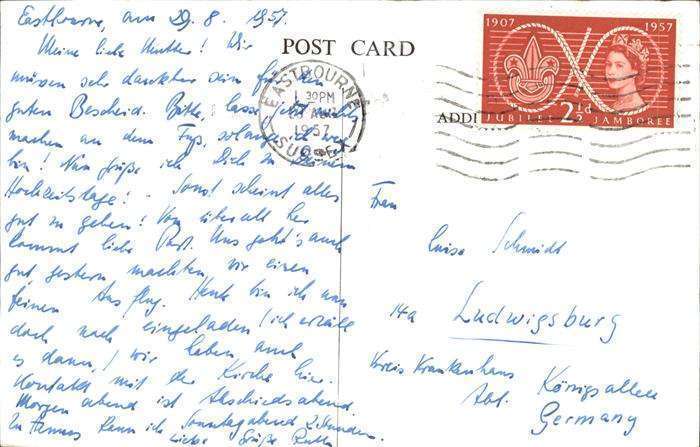 Eastbourne, am 29.8.1957.
Meine liebe Mutter! Wir
müssen sehr dankbar sein für den
guten Bescheid. Bitte, lass jetzt nichts
machen an dem Fuß, solange ich weg
bin! Nun grüße ich Dich zu Deinem
Hochzeitstage! Sonst scheint alles
gut zu gehen! Von überall her
kommt liebe Post. Uns geht's auch
gut, gestern machten wir einen
feinen Ausflug. Heute bin ich nun
doch noch eingeladen (ich erzähle
es dann,) wir haben auch
Kontakt mit der Kirche hier.
Morgen abend ist Abschiedsabend.
kann ich Sonntagabend 2 Stunden.
Liebe Grüße Ruth
POST CARD
EASTBOURNE
1 30PM
1957
SUSSEX
1907 1957
2½d
JUBILEE JAMBOREE
ADD
Frau
Luise Schmidt
14a Ludwigsburg
Kreis Krankenhaus
Abt. Königsallee
Germany